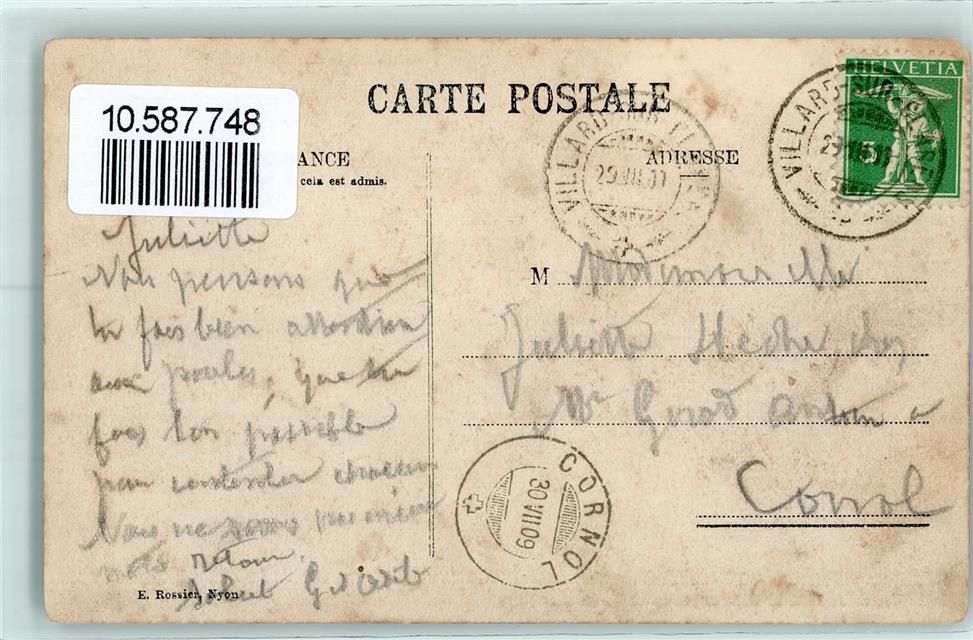 CARTE POSTALE
10.587.748
ANCE
cela est admis.
ADRESSE
HELVETIA
5
VILLARD-SUR
29.VII.09
VILLARD-SUR
29.VII
Juliette
Nous pensons que
tu fais bien attention
aux poules, que tu
fais ton possible
pour contenter chacun
Nous ne
retour.
E. Rossier, Nyon
M Mademoiselle
Juliette Hêche chez
Mr Girod à
Cornol
CORNOL
30 VII 09